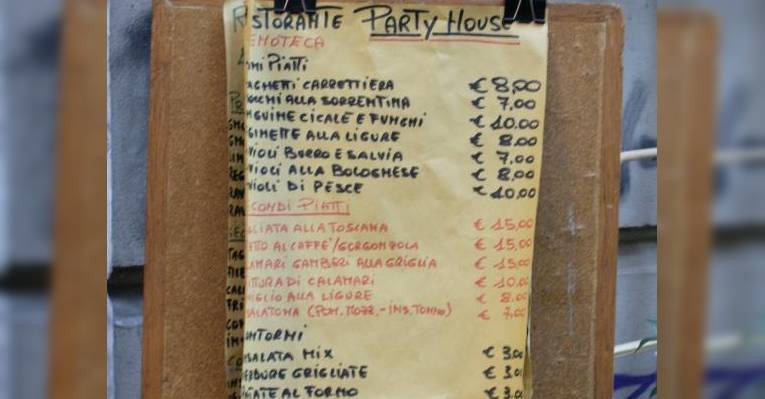 RISTORANTE PARTY HOUSE
ENOTECA
IMI PIATTI
AGHETI CARRETTIERA € 8,00
OCCHI ALLA SORRENTINA € 7,00
NGUINE CICALE E FUNGHI € 10.00
GINETTE ALLA LIGURE € 8.00
VIOLI BURRO E SALVIA € 7,00
VIOLI ALLA BOLOGNESE € 8,00
VIOLI DI PESCE € 10,00
CONDI PIATTI
GLIATA ALLA TOSCANA € 15,00
ETTO AL CAFFE'/GORGONZOLA € 15,00
AMARI GAMBERI ALLA GRIGLIA € 15,00
TTURA DI CALAMARI € 10,00
NIGLIO ALLA LIGURE € 8.00
SALATONA (POM. MOZZ. - INS. TONNO) € 7,00
ONTORNI
SALATA MIX € 3,00
ERDURE GRIGLIATE € 3,00
TATE AL FORNO € 3,00